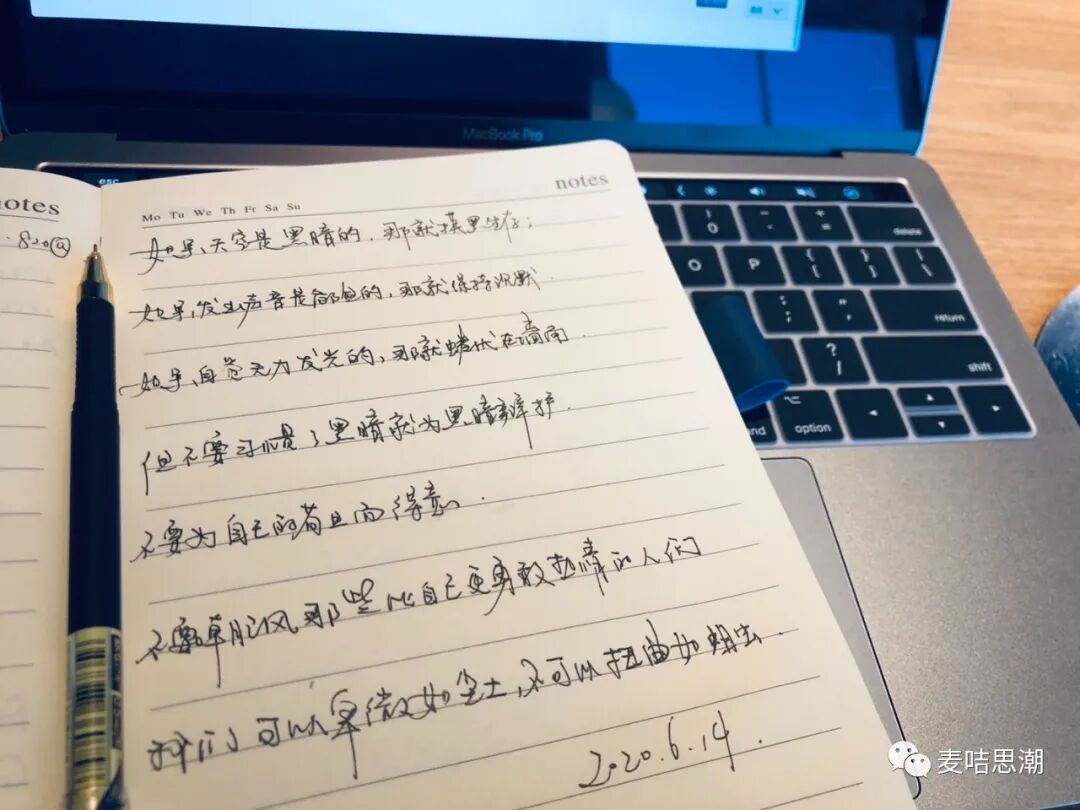 MacBook Pro
esc
notes
notes
Mo Tu We Th Fr Sa Su
820
如果,天空是黑暗的,那就摸黑生存;
如果,发出声音是危险的,那就保持沉默.
如果,自觉无力发光的,那就蜷伏在墙角.
但不要习惯了黑暗就为黑暗辩护.
不要为自己的苟且而得意.
不要嘲讽那些比自己更勇敢热情的人们
我们可以卑微如尘土,不可以扭曲如蛆虫.
2020.6.14.
delete
O P
return
shift
option
麦咭思潮